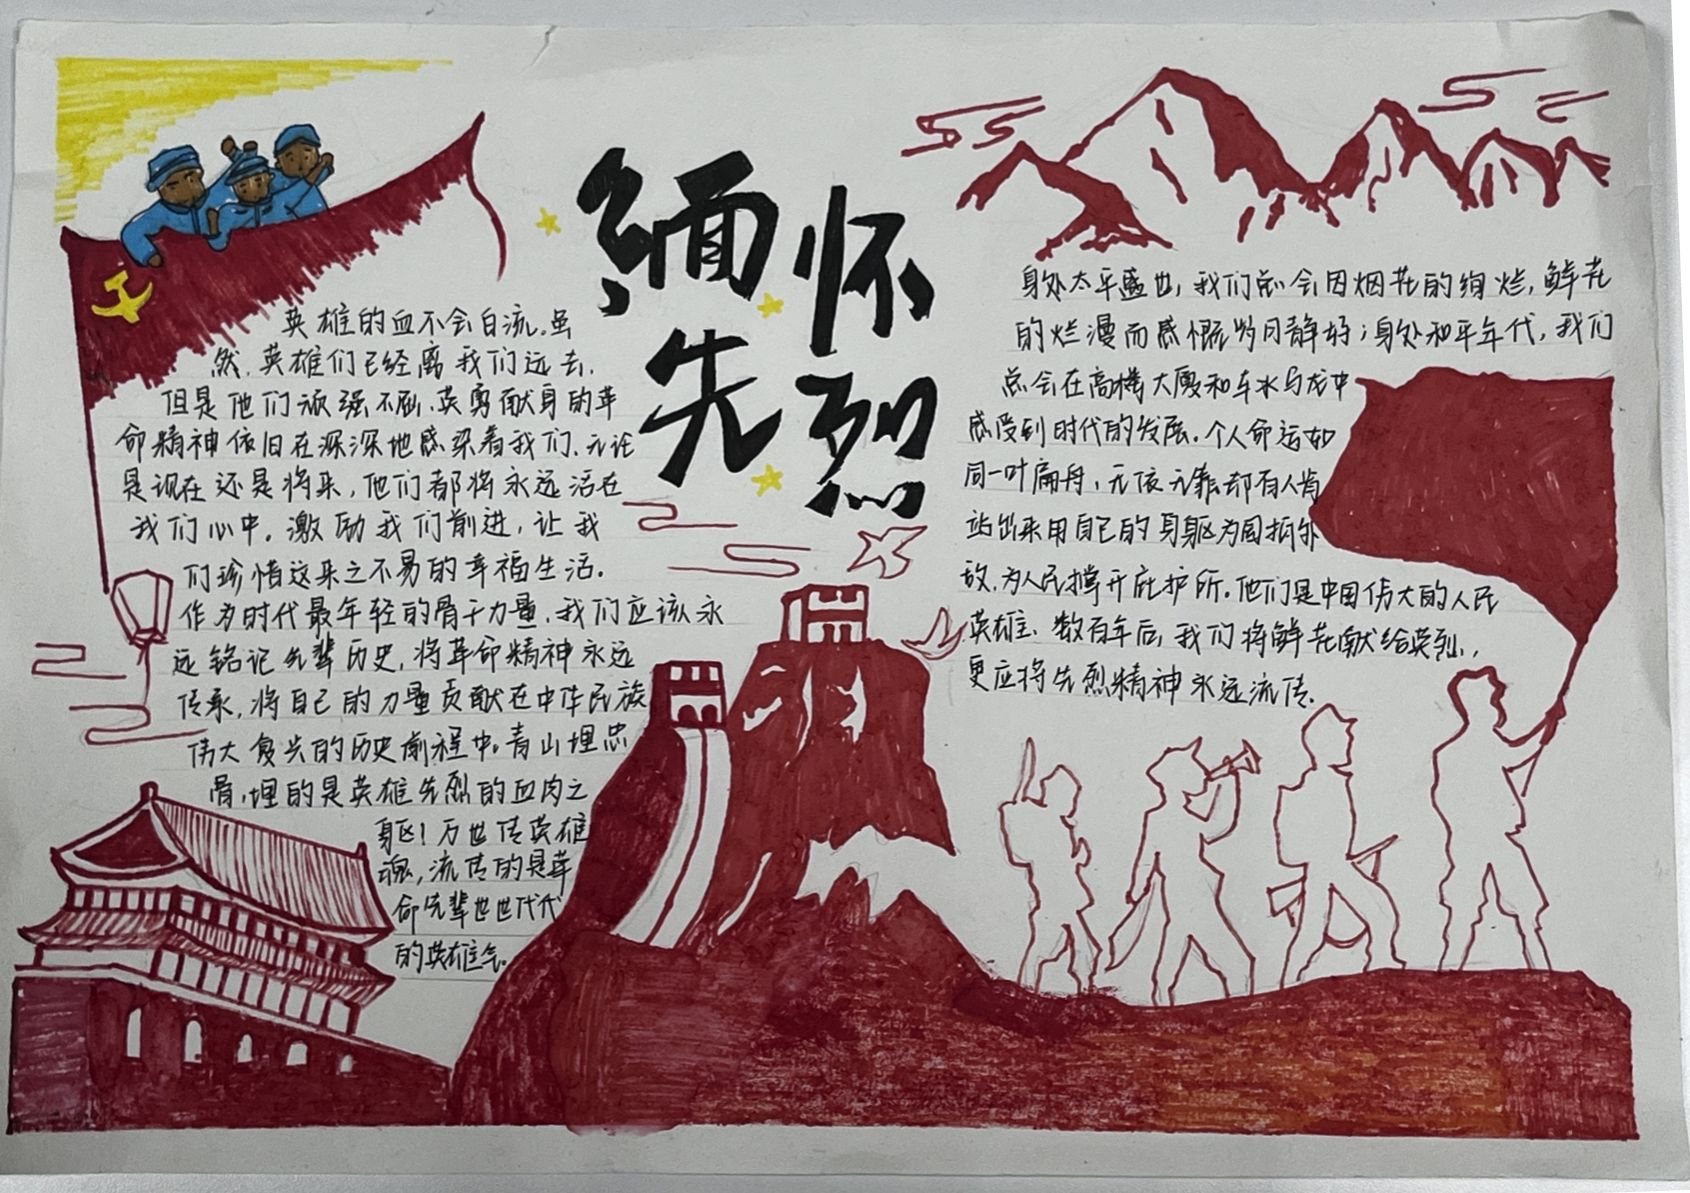 缅怀
先烈
英雄的血不会白流。虽
然,英雄们已经离我们远去,
但是他们顽强不屈、英勇献身的革
命精神依旧在深深地感染着我们、无论
是现在还是将来,他们都将永远活在
我们心中。激励我们前进,让我
们珍惜这来之不易的幸福生活。
作为时代最年轻的骨干力量,我们应该永
远铭记先辈历史,将革命精神永远
传承,将自己的力量贡献在中华民族
伟大复兴的历史前程中。青山埋忠
骨,埋的是英雄先烈的血肉之
躯!万世传英雄
魂,流传的是革
命先辈世世代代
的英雄气。
身处太平盛世,我们总会因烟花的绚烂,鲜花
的烂漫而感慨岁月静好;身处和平年代,我们
总会在高楼大厦和车水马龙中
感受到时代的发展。个人命运如
同一叶扁舟,无依无靠却有人肯
站出来用自己的身躯为国抵外
敌,为人民撑开庇护所。他们是中国伟大的人民
英雄、数百年后,我们将鲜花献给英烈,
更应将先烈精神永远流传.